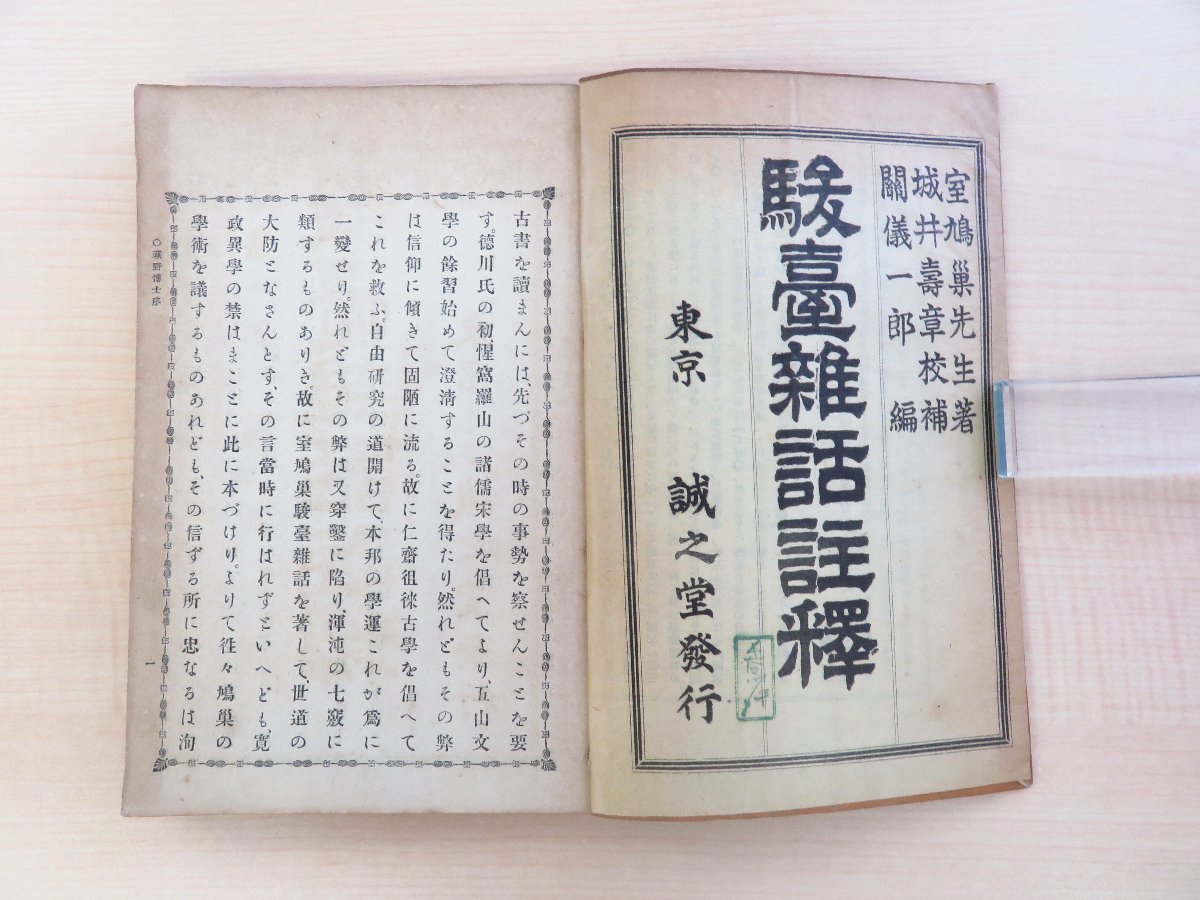 室鳩巢先生著
城井壽章校補
關儀一郎編
駿臺雜話註釋
東京 誠之堂發行
古書を讀まんには、先づその時の事勢を察せんことを要
す。德川氏の初、惺窩羅山の諸儒宋學を倡へてより、五山文
學の餘習始めて澄淸することを得たり。然れどもその弊
は信仰に傾きて固陋に流る。故に仁齋徂徠古學を倡へて
これを救ふ。自由研究の道開けて、本邦の學運これが爲に
一變せり。然れどもその弊は又穿鑿に陷り、渾沌の七竅に
類するものありき。故に室鳩巢駿臺雜話を著して、世道の
大防となさんとす。その言當時に行はれずといへども、寬
政異學の禁はまことに此に本づけり。よりて往々鳩巢の
學術を議するものあれども、その信ずる所に忠なるは洵
○萩野博士序
一